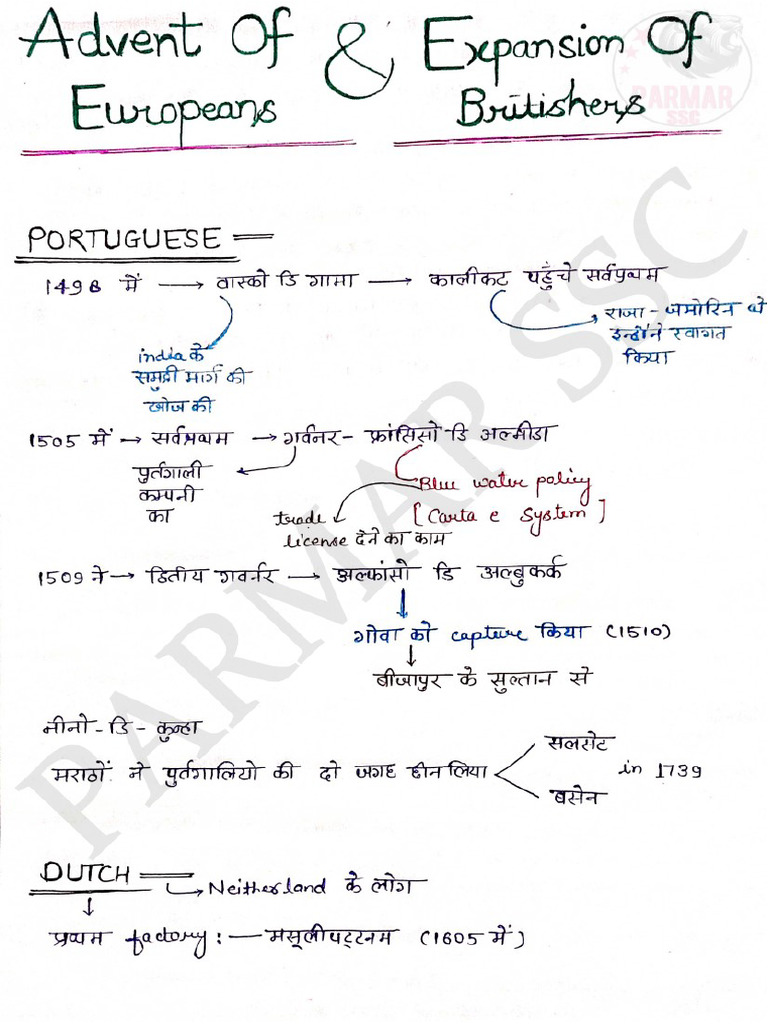 Advent Of & Expansion Of
Europeans Britishers
PARMAR
SSC
PORTUGUESE
1498 में → वास्को डि गामा → कालीकट पहुँचे सर्वप्रथम
राजा - जमोरिन थे
इन्होंने स्वागत
किया
india के
समुद्री मार्ग की
खोज की
1505 में → सर्वप्रथम → गर्वनर - फ्रांसिसो डि अल्मीडा
पुर्तगाली
कम्पनी
का
Blue water policy
[Carta e System]
trade
license देने का काम
1509 ने → द्वितीय गवर्नर → अल्फांसो डि अल्बुकर्क
गोवा को capture किया (1510)
बीजापुर के सुल्तान से
नीनो - डि - कुन्हा
मराठों ने पुर्तगालियो की दो जगह छीन लिया
सलसेट
in 1739
बसेन
DUTCH
Neitherland के लोग
प्रथम factory : — मसूलीपट्टनम (1605 में)
PARMAR SSC